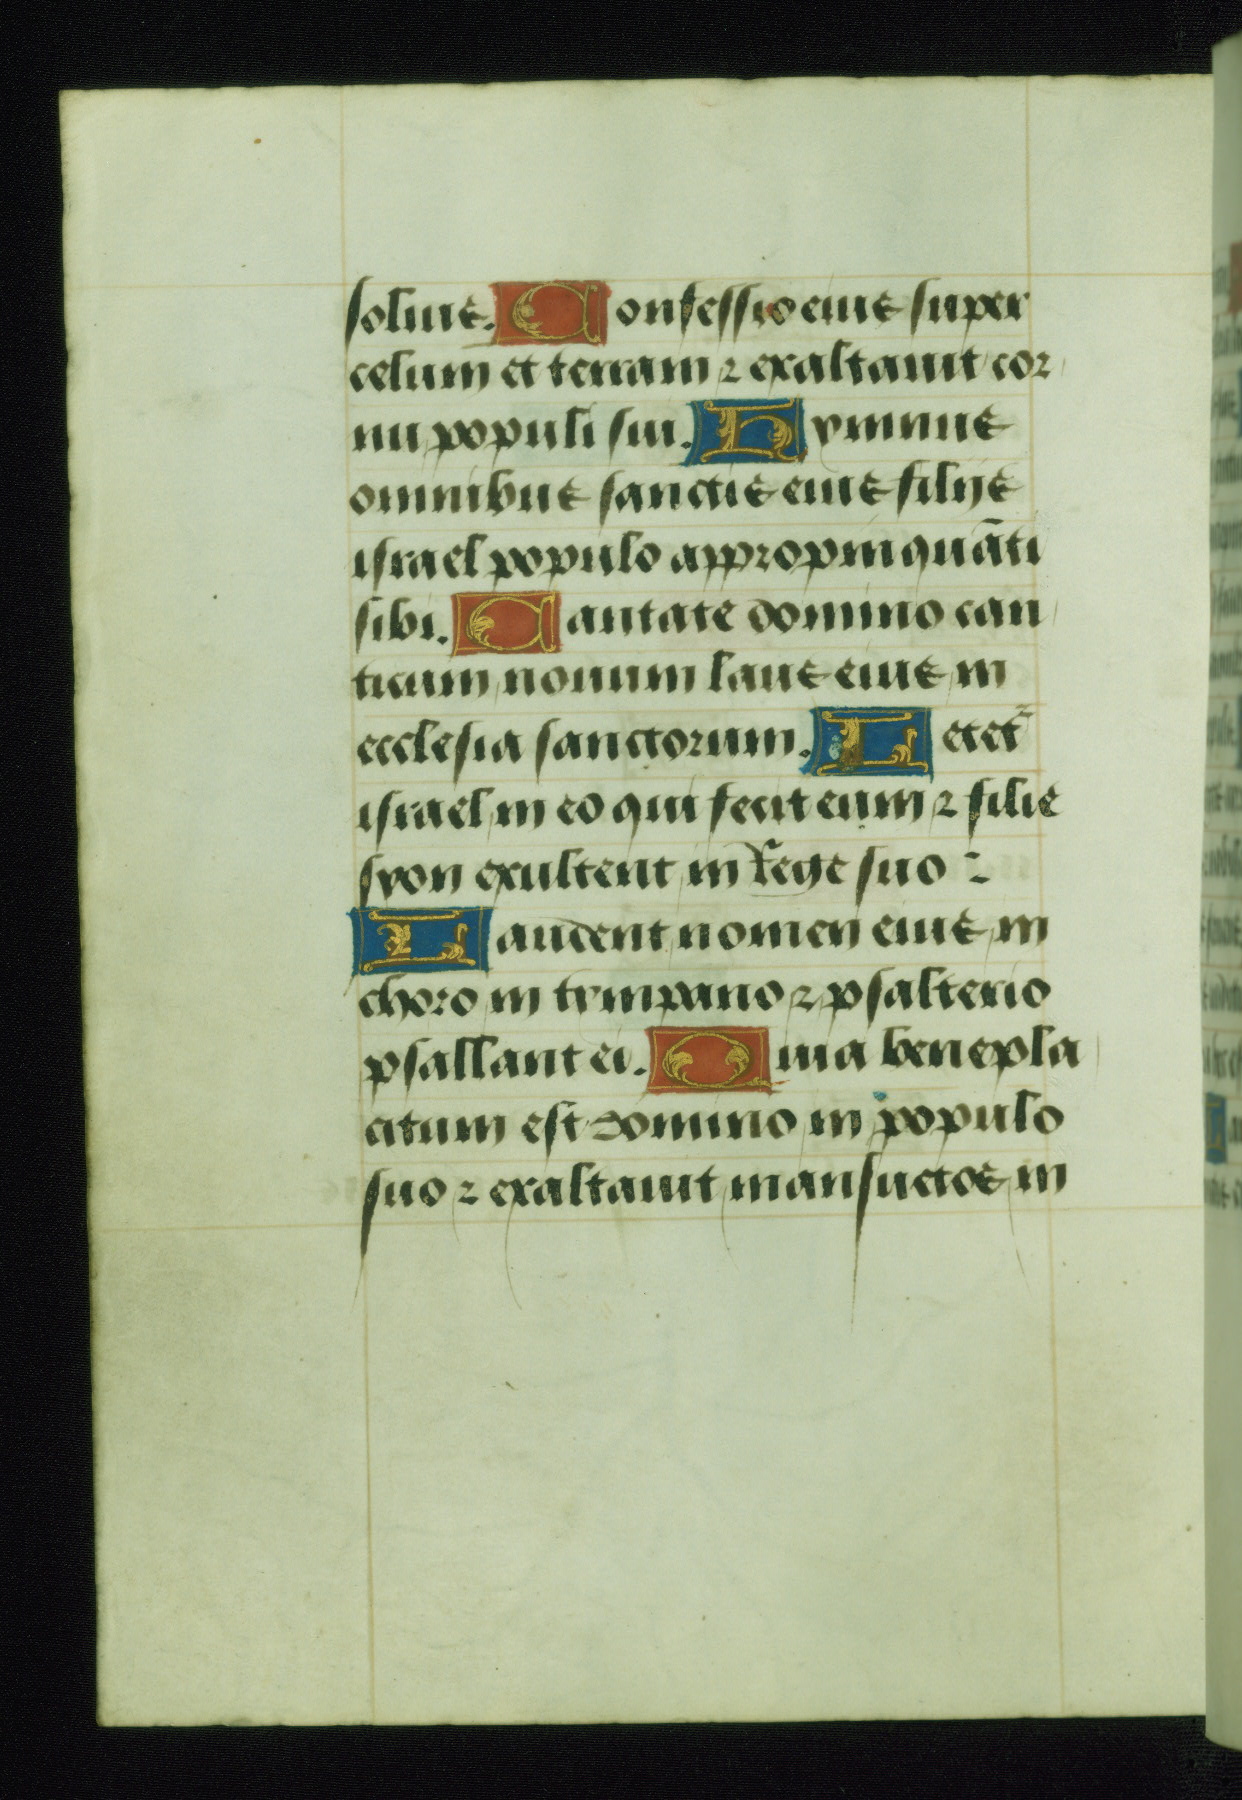 solius. Confessio eius super
celum et terram ⁊ exaltauit cor
nu populi sui. Hymnus
omnibus sanctis eius filijs
israel populo appropinquāti
sibi. Cantate domino can
ticum nouum laus eius in
ecclesia sanctorum. Letet᷑
israel in eo qui fecit eum ⁊ filie
syon exultent in Rege suo
Laudent nomen eius in
choro in tympano ⁊ psalterio
psallant ei. Quia benepla
citum est domino in populo
suo ⁊ exaltauit mansuetos in